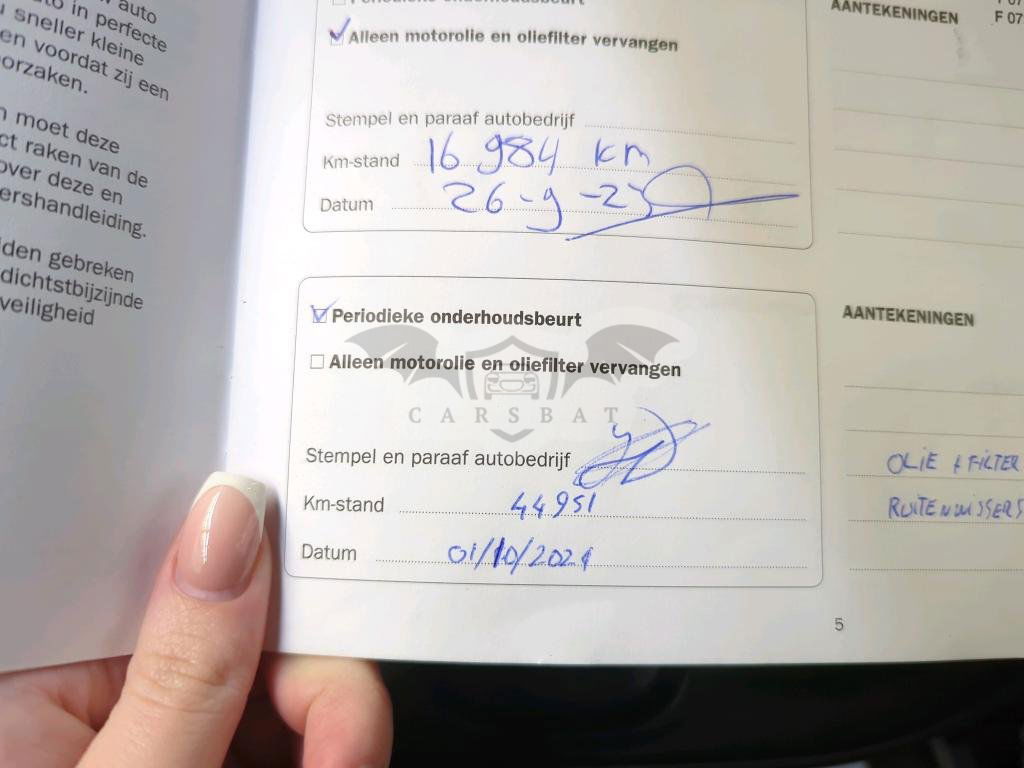 auto
to in perfecte
u sneller kleine
en voordat zij een
orzaken.
moet deze
ct raken van de
over deze en
ershandleiding.
den gebreken
dichtstbijzijnde
veiligheid
Periodieke onderhoudsbeurt
Alleen motorolie en oliefilter vervangen
Stempel en paraaf autobedrijf
Km-stand 16 984 km
Datum 26-9-23
AANTEKENINGEN
F 07
Periodieke onderhoudsbeurt
Alleen motorolie en oliefilter vervangen
CARSBAT
Stempel en paraaf autobedrijf
Km-stand 44951
Datum 01/10/2021
AANTEKENINGEN
OLIE + FILTER
RUITENWISSERS
5